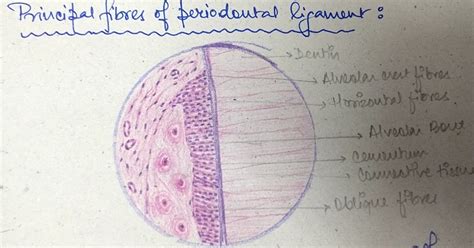 Principal fibres of periodontal ligament :
Dentin
Alveolar crest fibres
Horizontal fibres
Alveolar Bone
Cementum
Connective tissue
Oblique fibres